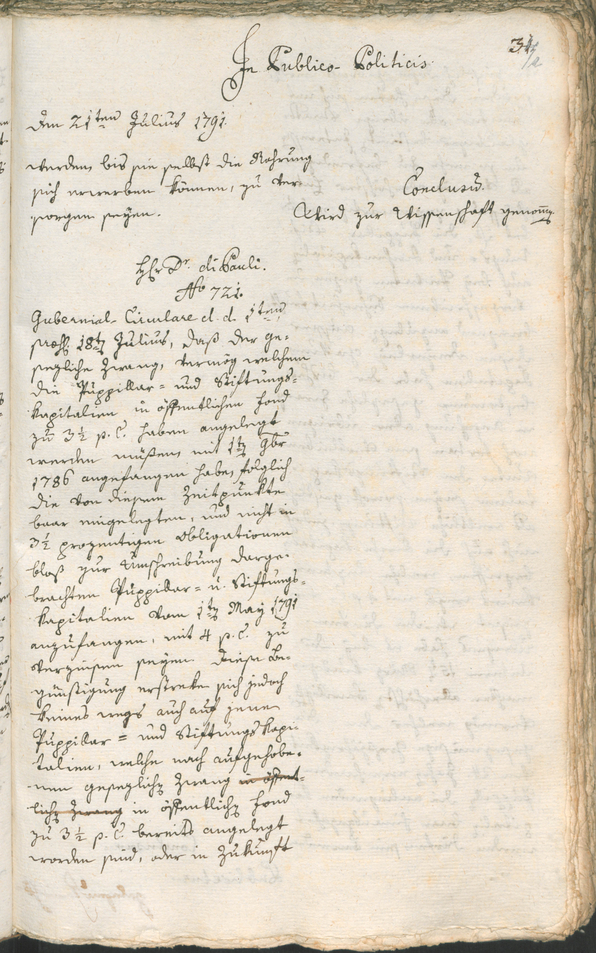 In Publico-Politicis.
den 21ten Julius 1791.
werden, bis sie selbst die Nahrung
sich erwerben können, zu ver-
sorgen seyen.
Conclusū.
Wird zur Wissenschaft genom̄.
H͞r Dr. di Pauli.
No 721.
Gubernial-Circulare d. d. 1ten
praes. 18t Julius, daß der ge-
sezliche Zwang, vermög welchem
die Puppillar- und Stiftungs-
kapitalien in öffentlichen Fond
zu 3½ p. C. haben angelegt
werden müßen, mit 1t 9br
1786 angefangen habe, folglich
die von diesem Zeitpunkte
baar eingelegten, und nicht in
3½ prozentigen Obligationen
blos zur Umschreibung darge-
brachten Puppillar- u. Stiftungs-
kapitalien vom 1t May 1791
anzufangen, mit 4 p. C. zu
verzinsen seyen. Diese Be-
günstigung erstreke sich jedoch
keines wegs auch auf jene
Puppillar- und Stiftungskapi-
talien, welche nach aufgehobe-
nem gesezlichen Zwang in öffent-
lichen Zwang in öffentlichen Fond
zu 3½ p. C. bereits angelegt
worden sind, oder in Zukunft